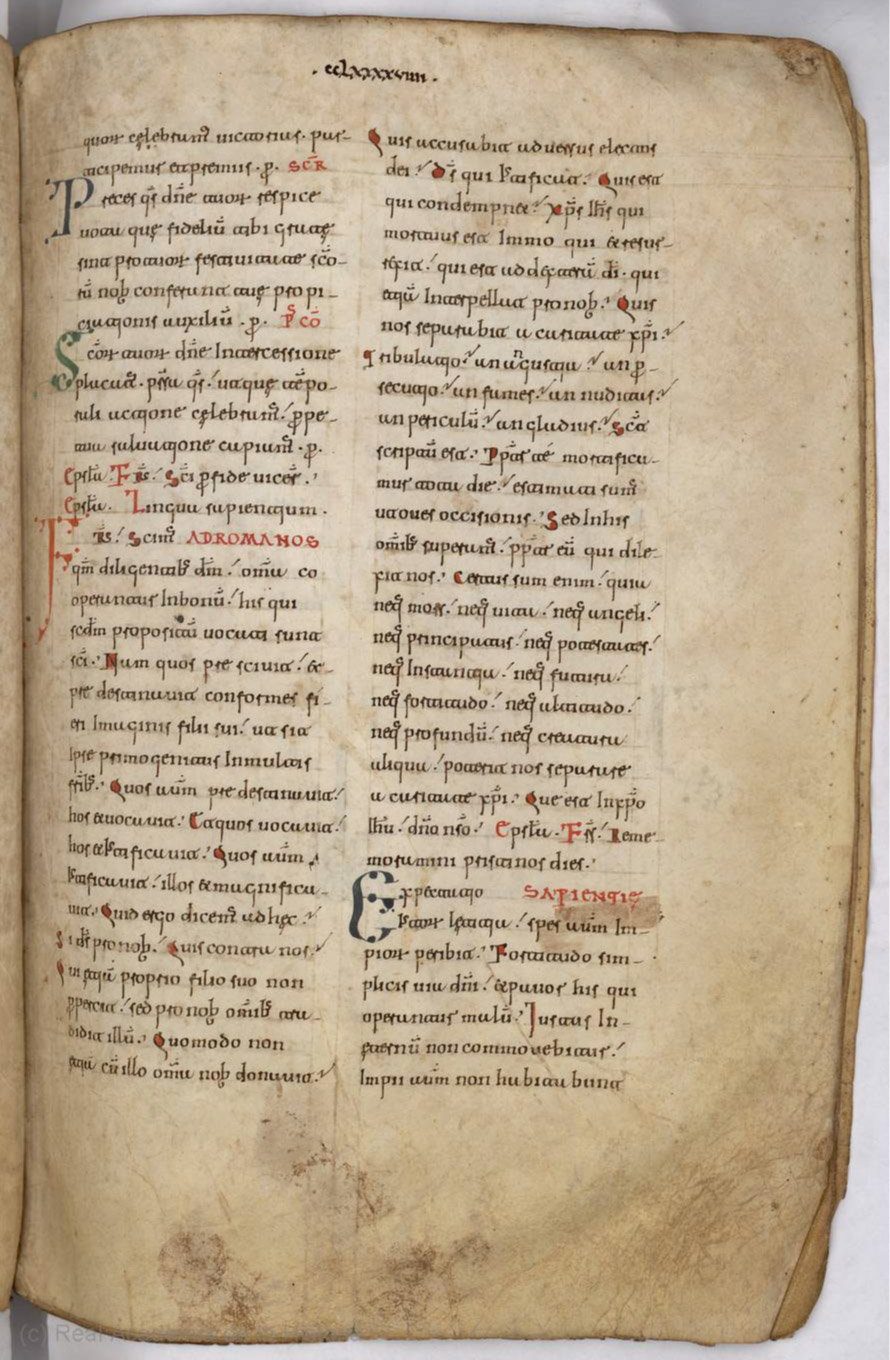 · ccLxxxxviiii ·
quor cęlebramꝰ uictorias · par-
ticipemus et premiis · ꝑ. SCR̄
Preces qs̄ dn̄e tuor respice
uota que fideliū tibi gratę
sint pro tuor festiuitate sc̄o-
rū nob̄ conferant atque propi-
ciationis auxiliū · ꝑ. Pˢ CŌ
Sc̄or tuor dn̄e Intercessione
placatꝰ · pr̄sta qs̄ · ut que tēpo-
rali actione cęlebramꝰ ꝑpe-
tua saluatione capiamꝰ · ꝑ.
Epsl̄a. Fr̄s. Sc̄i ꝑ fide uicer̄.
Epsl̄a. Lingua sapientium.
Fr̄s. Scimꝰ AD ROMANOS
qm̄ diligentibꝰ dm̄ omīa co
operantur In bonū his qui
scdm̄ propositū uocati sunt
sc̄i. Nam quos pre sciuit et
pre destinauit conformes fi-
eri Imaginis filii sui ut sit
Ipse primogenitus In multis
fr̄ibꝰ. Quos autm̄ pre destinauit
hos et uocauit. Et quos uocauit
hos et Iustificauit. Quos autm̄
Iustificauit illos et magnifica-
uit. Quid ergo dicemꝰ ad hęc
Si ds̄ pro nob̄. Quis contra nos
Qui etiā proprio filio suo non
ꝑpercit sed pro nob̄ omībꝰ tra-
didit illū. Quomodo non
etiā cū illo omīa nob̄ donauit
Quis accusabit aduersus electos
dei. Ds̄ qui Iustificat. Quis est
qui condempnet xp̄s Ihs̄ qui
mortuus est Immo qui et resur-
rexit qui est ad dexterā dī · qui
etiā Interpellat pro nob̄. Quis
nos separabit a caritate xp̄i
Tribulatio an angustia an ꝑ-
secutio an fames an nuditas
an periculū an gladius Sc̄t
scriptū est. Ppter te mortifica-
mur tota die estimati sumꝰ
ut oues occisionis. Sed In his
omībꝰ superamꝰ ppter eū qui dile-
xit nos. Certus sum enim quia
neq̄ mors neq̄ uita neq̄ angeli
neq̄ principatus neq̄ potestates
neq̄ Instantia neq̄ futura
neq̄ fortitudo neq̄ altitudo
neq̄ profundū neq̄ creatura
aliqua poterit nos separare
a caritate xp̄i. Que est In xp̄o
Ihū dn̄o nr̄o. Epsl̄a. Fr̄s. Reme-
moramini pristinos dies.
Expectatio SAPIENTIĘ
Iustor letitia spes autm̄ Im-
pior peribit. Fortitudo sim-
plicis uia dn̄i et pauor his qui
operantur malū. Iustus In
eternū non commouebitur
Impii autm̄ non habitabunt